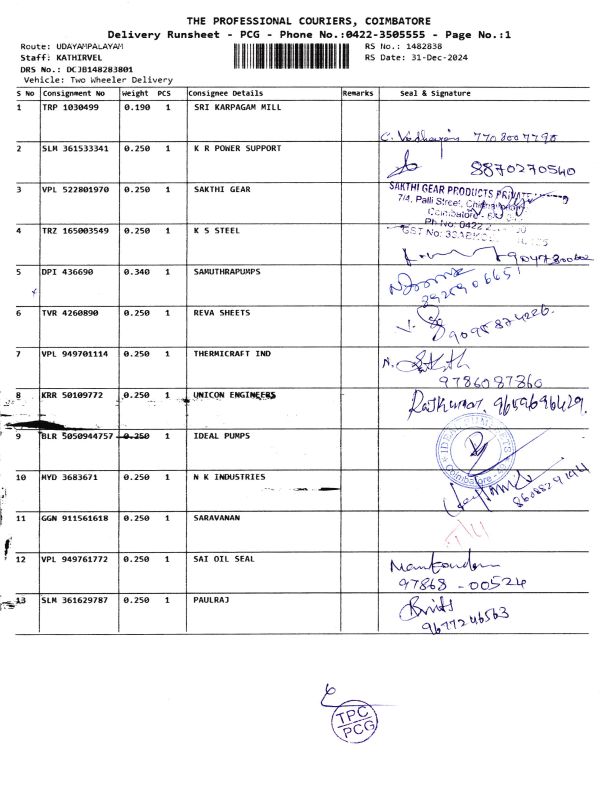 THE PROFESSIONAL COURIERS, COIMBATORE
Delivery Runsheet - PCG - Phone No.:0422-3505555 - Page No.:1
Route: UDAYAMPALAYAM RS No.: 1482838
Staff: KATHIRVEL RS Date: 31-Dec-2024
DRS No.: DCJB148283801
Vehicle: Two Wheeler Delivery
S No Consignment No Weight PCS Consignee Details Remarks Seal & Signature
1 TRP 1030499 0.190 1 SRI KARPAGAM MILL
7708007790
2 SLM 361533341 0.250 1 K R POWER SUPPORT
8870270540
3 VPL 522801970 0.250 1 SAKTHI GEAR
SAKTHI GEAR PRODUCTS PRIVATE
7/4, Palli Street,
Coimbatore
Ph No: 0422
GST No:
4 TRZ 165003549 0.250 1 K S STEEL
5 DPI 436690 0.340 1 SAMUTHRAPUMPS
8925906651
6 TVR 4260890 0.250 1 REVA SHEETS
V.
9095874226.
7 VPL 949701114 0.250 1 THERMICRAFT IND
N. Sakthi
9786087860
8 KRR 50109772 0.250 1 UNICON ENGINEERS
Rajkumar. 9659696429.
9 BLR 5050944757 0.250 1 IDEAL PUMPS
IDEAL PUMPS
Coimbatore
10 MYD 3683671 0.250 1 N K INDUSTRIES
11 GGN 911561618 0.250 1 SARAVANAN
12 VPL 949761772 0.250 1 SAI OIL SEAL
97868 - 00524
13 SLM 361629787 0.250 1 PAULRAJ
9677246563
TPC
PCG